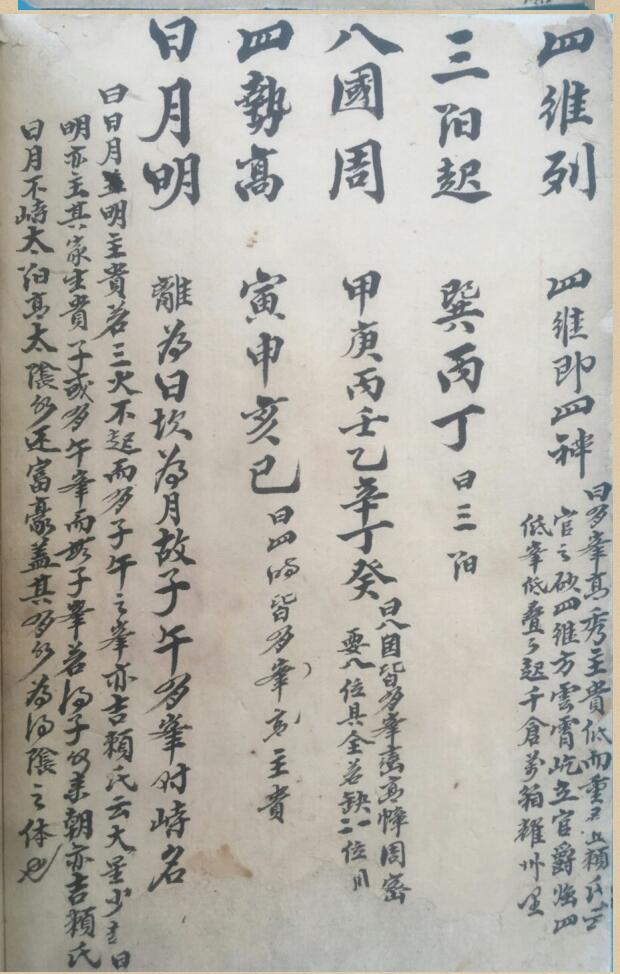 四維列
四維即四神
曰有峯高秀主貴低而重主丘賴氏云
官之砂四維方雲霄屹立官爵強四
低峯低疊疊起千倉萬箱耀州里
三阳起
巽丙丁曰三阳
八國周
甲庚丙壬乙辛丁癸
曰八国皆有峯巒高嶂周密
要八位具全若缺一二位用
四勢高
寅申亥巳曰四隅皆有峯高主貴
日月明
離為日坎為月故子午有峯对峙名
曰日月並明主貴若三火不起而有子午之峯亦吉賴氏云大星少主日
明亦主其家生貴子或有午峯而無子峯若得子水來朝亦吉賴氏
日月不峙太阳高太陰水还富豪蓋其有水為得陰之体也